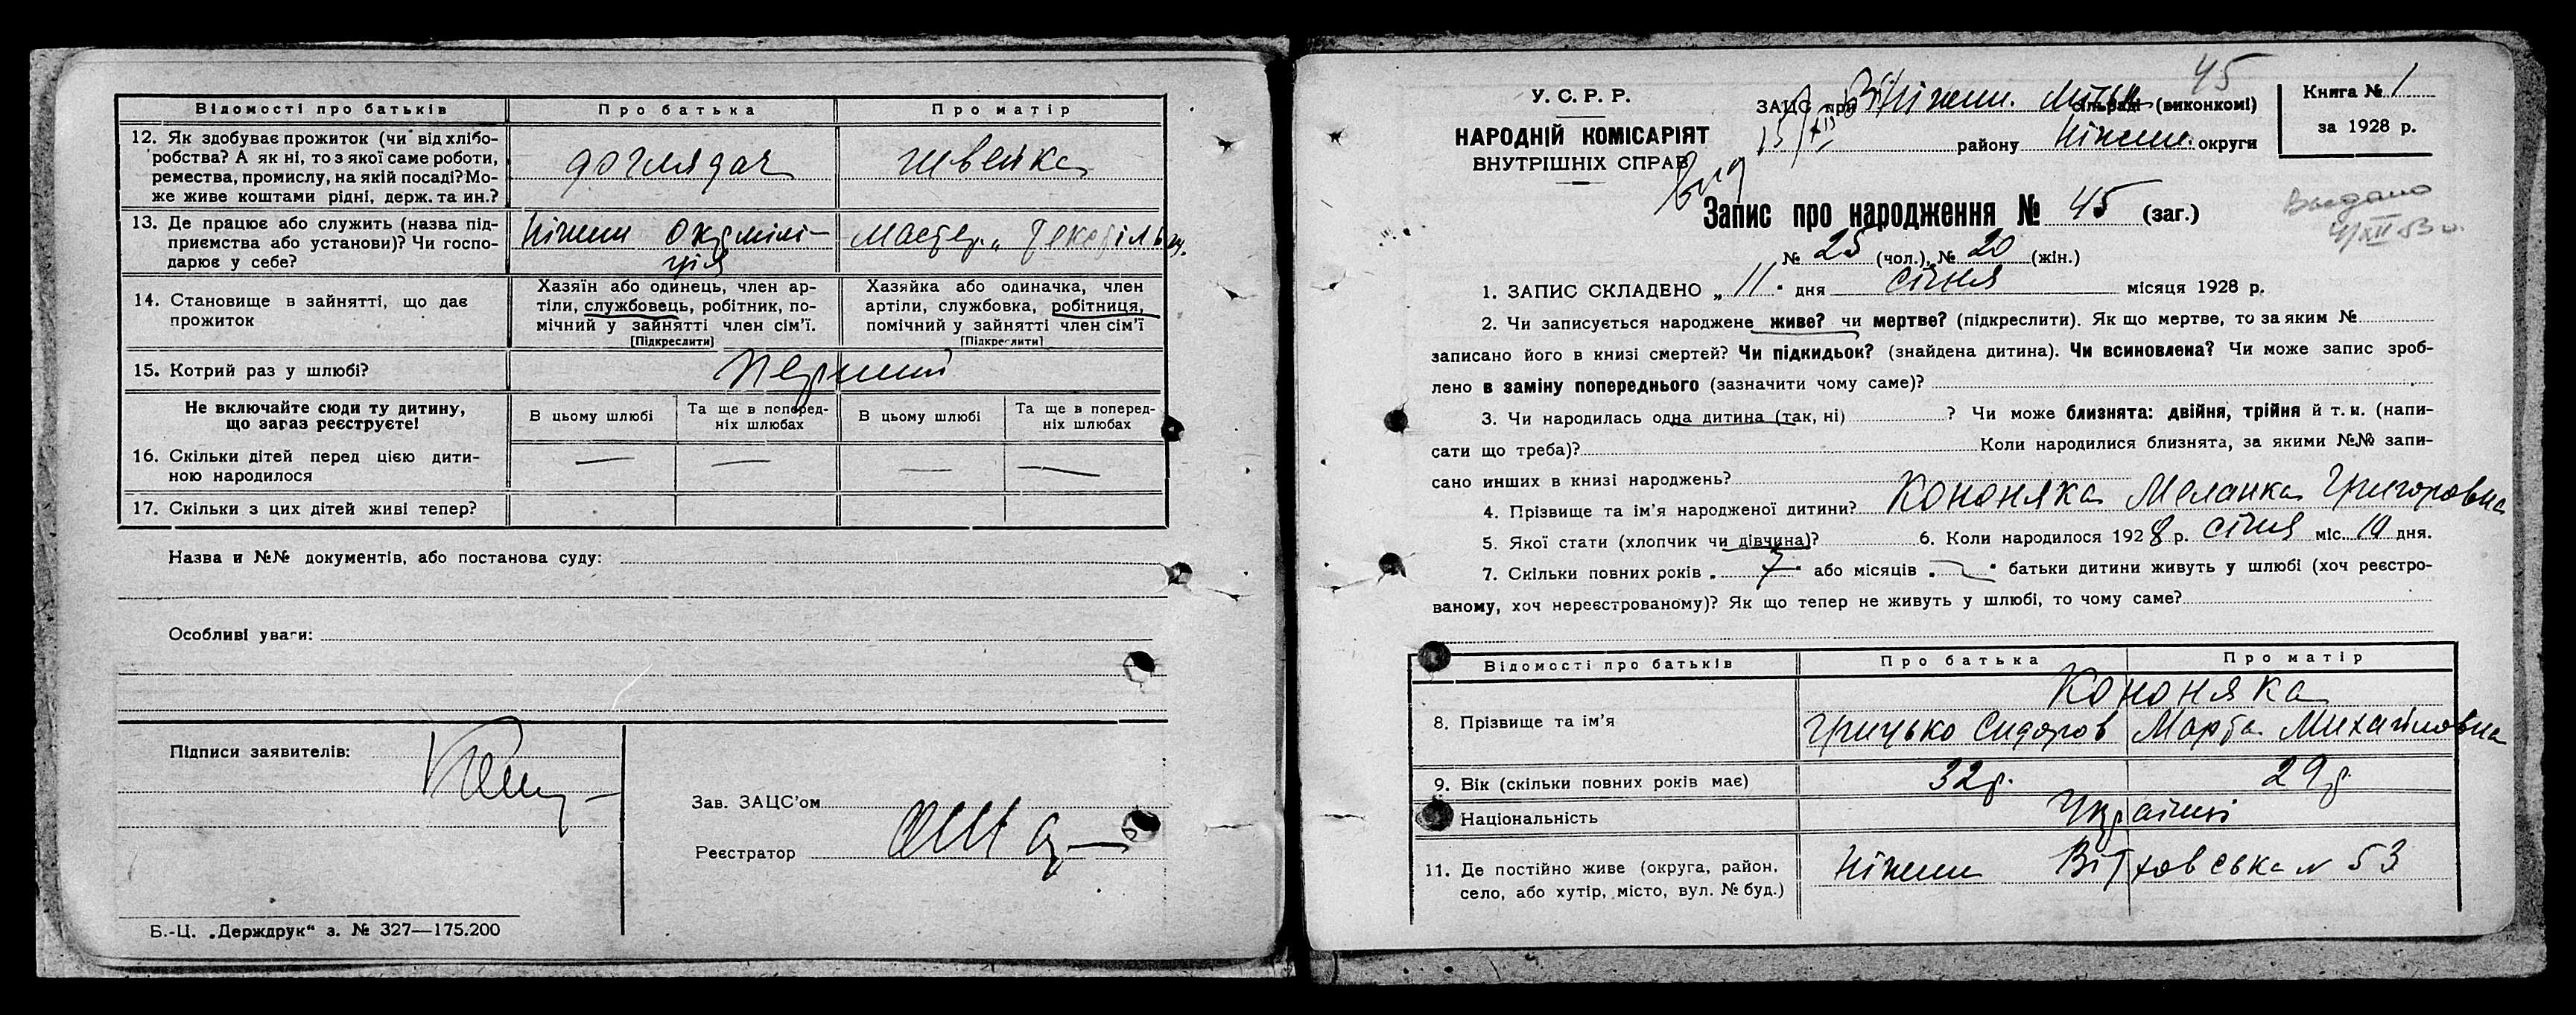 Відомості про батьків
Про батька
Про матір
12. Як здобуває прожиток (чи від хлібо-
робства? А як ні, то з якої саме роботи,
ремества, промислу, на якій посаді? Мо-
же живе коштами рідні, держ. та ин.?
доглядач
швейка
13. Де працює або служить (назва під-
приємства або установи)? Чи госпо-
дарює у себе?
Ніжин Окрмілі-
ція
мастер.
14. Становище в зайнятті, що дає
прожиток
Хазяїн або одинець, член ар-
тіли, службовець, робітник, по-
мічний у зайнятті член сім'ї.
[Підкреслити]
Хазяйка або одиначка, член
артіли, службовка, робітниця,
помічний у зайнятті член сім'ї
[Підкреслити]
15. Котрий раз у шлюбі?
Перший
Не включайте сюди ту дитину,
що загаз реєструєте!
В цьому шлюбі
Та ще в поперед-
ніх шлюбах
В цьому шлюбі
Та ще в поперед-
ніх шлюбах
16. Скільки дітей перед цією дити-
ною народилося
— — — —
17. Скільки з цих дітей живі тепер?
Назва и №№ документів, або постанова суду:
Особливі уваги:
Підписи заявителів:
Зав. ЗАЦС'ом
Реєстратор
Б.-Ц. „Держдрук“ з. № 327—175.200
45
У. С. Р. Р.
НАРОДНІЙ КОМІСАРІЯТ
ВНУТРІШНІХ СПРАВ
ЗАЦС при Ніжин. сільраді (виконкомі)
району Ніжин. округи
Книга № 1
за 1928 р.
Запис про народження № 45 (заг.)
Выдано
4/XII 53 г.
№ 25 (чол.), № 20 (жін.)
1. ЗАПИС СКЛАДЕНО „ 11 " дня січня місяця 1928 р.
2. Чи записується народжене живе? чи мертве? (підкреслити). Як що мертве, то за яким №
записано його в книзі смертей? Чи підкидьок? (знайдена дитина). Чи всиновлена? Чи може запис зроб-
лено в заміну попереднього (зазначити чому саме)?
3. Чи народилась одна дитина (так, ні) ? Чи може близнята: двійня, трійня й т. и. (напи-
сати що треба)? Коли народилися близнята, за якими №№ запи-
сано инших в книзі народжень?
4. Прізвище та ім'я народженої дитини? Кононяка Меланка Григоровна
5. Якої стати (хлопчик чи дівчина)? 6. Коли народилося 1928 р. січня міс. 10 дня.
7. Скільки повних років „ 7 " або місяців „ — " батьки дитини живуть у шлюбі (хоч реєстро-
ваному, хоч нереєстрованому)? Як що тепер не живуть у шлюбі, то чому саме?
Відомості про батьків
Про батька
Про матір
8. Прізвище та ім'я
Кононяка
Грицько Сидоров
Марфа Михайловна
9. Вік (скільки повних років має)
32 р.
29 р.
Національність
Українці
11. Де постійно живе (округа, район,
село, або хутір, місто, вул. № буд.)
Ніжин
№ 53